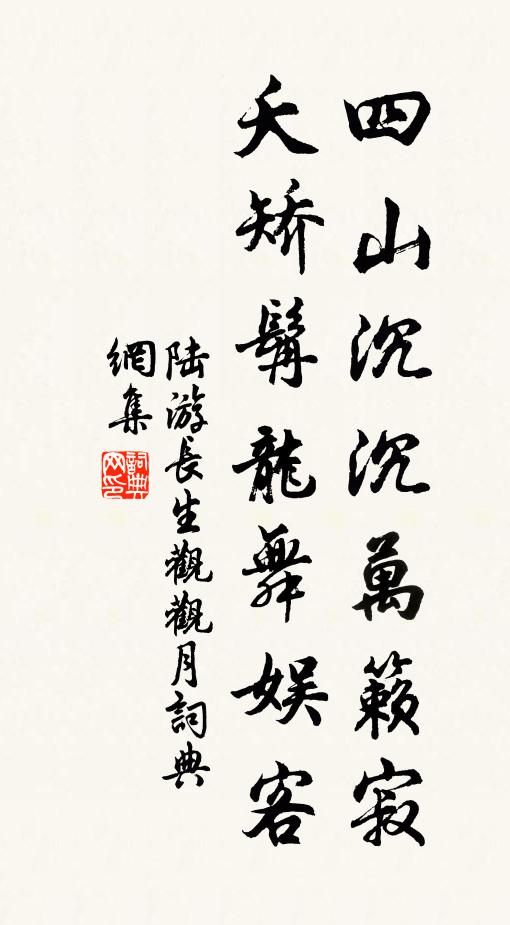 四山沉沉萬籟寂
夭矯髯龍舞娛客
陆游長生觀觀月詞典
網集
詞典
网印